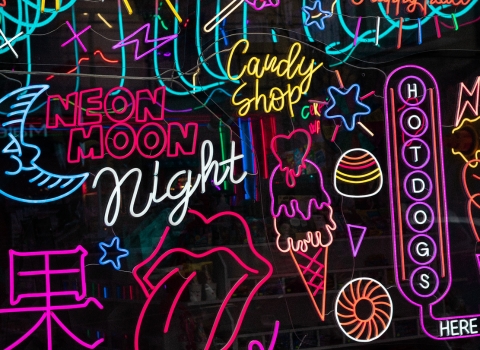 Candy
Shop
NEON
MOON
Night
HOT DOGS
果
HERE